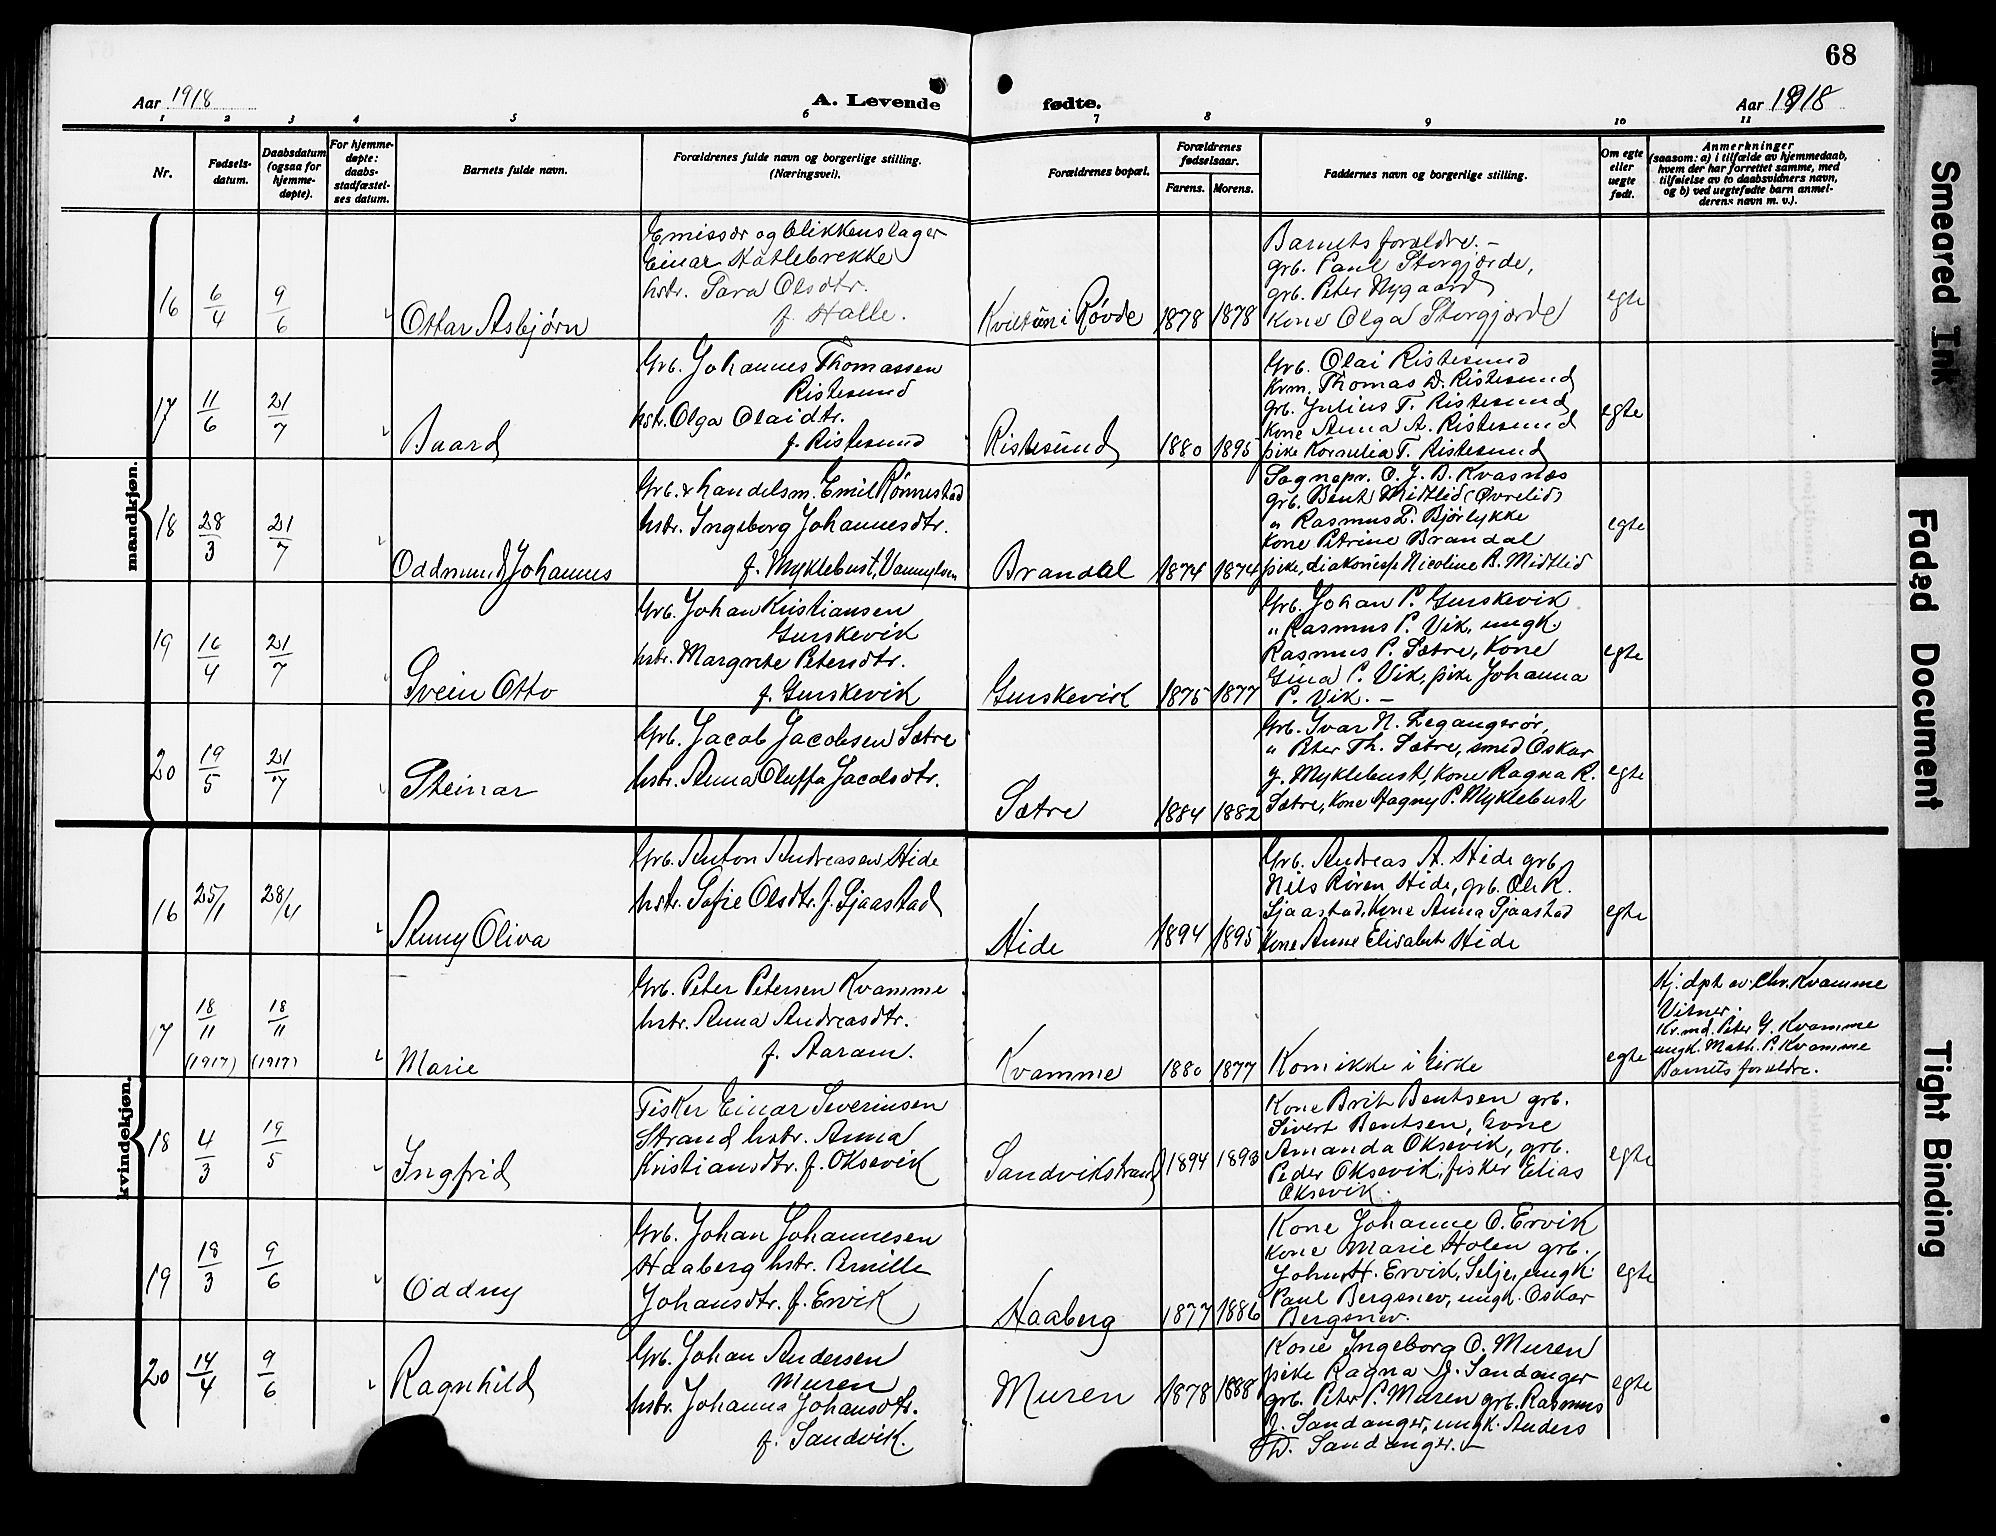 68
Aar 1918
A. Levende
fødte.
Aar 1918
1 2 3 4 5 6 7 8 9 10 11
Nr.
Fødsels-
datum.
Daabsdatum
(ogsaa for
hjemme-
døpte).
For hjemme-
døpte:
daabs-
stadfæstel-
ses datum.
Barnets fulde navn.
Forældrenes fulde navn og borgerlige stilling.
(Næringsvei).
Forældrenes bopæl.
Forældrenes
fødselsaar.
Farens. Morens.
Faddernes navn og borgerlige stilling.
Om egte
eller
uegte
født.
Anmerkninger
(saasom: a) i tilfælde av hjemmedaab,
hvem der har forrettet samme, med
tilføielse av to daabsvidners navn,
og b) ved uegtefødte barn anmel-
derens navn m. v.).
mandkjøn.
16
6/4
9/6
Ottar Asbjørn
Emissær og blikkenslager
Einar Hatlebrekke
hstr. Sara Olsdtr.
f. Halle.
Kviltun i Røvde
1878
1878
Barnets forældre. -
grb. Paul Storgjørde,
grb. Peter Nygaard
Kone Olga Storgjørde
egte
17
11/6
21/7
Baard
Grb. Johannes Thomassen
Ristesund
hstr. Olga Olaidtr.
f. Ristesund
Ristesund
1880
1895
Grb. Olai Ristesund
Krm. Thomas D. Ristesund
grb. Julius T. Ristesund
Kone Anna A. Ristesund
pike Kornelia T. Ristesund
egte
18
28/3
21/7
Oddmund Johannes
Grb. & handelsm. Emil Rønnestad
hstr. Ingeborg Johannesdtr.
f. Myklebust, Vannylven
Brandal
1874
1874
Sognepr. O. J. B. Kvasnes
grb. Bent Midtlid (Øvrelid)
" Rasmus D. Bjørlykke
Kone Petrine Brandal
pike, diakonisse Nicoline B. Midtlid
egte
19
16/4
21/7
Svein Otto
Grb. Johan Kristiansen
Gurskevik
hstr. Margrete Petersdtr.
f. Gurskevik
Gurskevik
1875
1877
Grb. Johan P. Gurskevik
" Rasmus P. Vik, ungk.
Rasmus P. Sætre, Kone
Gina P. Vik, pike Johanna
P. Vik. -
egte
20
19/5
21/7
Steinar
Grb. Jacob Jacobsen Sætre
hstr. Anna Oluffa Jacobsdtr.
Sætre
1884
1882
Grb. Ivar N. Legangerør,
" Peter Th. Sætre, smed Oskar
J. Myklebust, Kone Ragna R.
Sætre, Kone Hagny P. Myklebust
egte
kvindekjøn.
16
25/1
28/4
Anny Oliva
Grb. Anton Andreasen Hide
hstr. Sofie Olsdtr. f. Sjaastad
Hide
1894
1895
Grb. Andreas A. Hide grb.
Nils Røren Hide, grb. Ole K.
Sjaastad, Kone Anna Sjaastad
Kone Anne Elisabet Hide
egte
17
18/11
(1917)
18/11
(1917)
Marie
Grb. Peter Petersen Kvamme
hstr. Anna Andreasdtr.
f. Aaram.
Kvamme
1880
1877
Kom ikke i kirke
egte
Hj. dpt av. Chr. Kvamme
Vitner:
Kr.md. Peter G. Kvamme
ungk. Math. P. Kvamme
Barnets forældre.
18
4/3
19/5
Ingfrid
Fisker Einar Severinsen
Strand, hstr. Anna
Kristiansdtr. f. Oksevik
Sandvikstrand
1894
1893
Kone Brit Bentsen grb.
Sivert Bentsen, kone
Amanda Oksevik, grb.
Peder Oksevik, fisker Elias
Oksevik.
egte
19
18/3
9/6
Oddny
Grb. Johan Johannesen
Haaberg hstr. Pernille
Johansdtr. f. Ervik
Haaberg
1877
1886
Kone Johanne O. Ervik
kone Marie Holen grb.
John H. Ervik, Selje, ungk.
Paul Bergsnev, ungk. Oskar
Bergsnev.
egte
20
14/4
9/6
Ragnhild
Grb. Johan Andersen
Muren
hstr. Johanna Johansdtr.
f. Sandvik.
Muren
1878
1888
Kone Ingeborg O. Muren
pike Ragna J. Sandanger
grb. Peter P. Muren grb. Rasmus
J. Sandanger, ungk. Anders
D. Sandanger. -
egte
Smeared Ink
Faded Document
Tight Binding